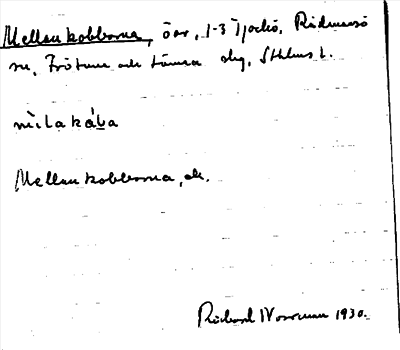 Mellankobbarna, öar, 1-3 Tjockö, Rådmansö
sn, Frötuna och Länna skg, Sthlms l.
mèlakába
Mellankobbarna, ek.
Rickard Norrman 1930.